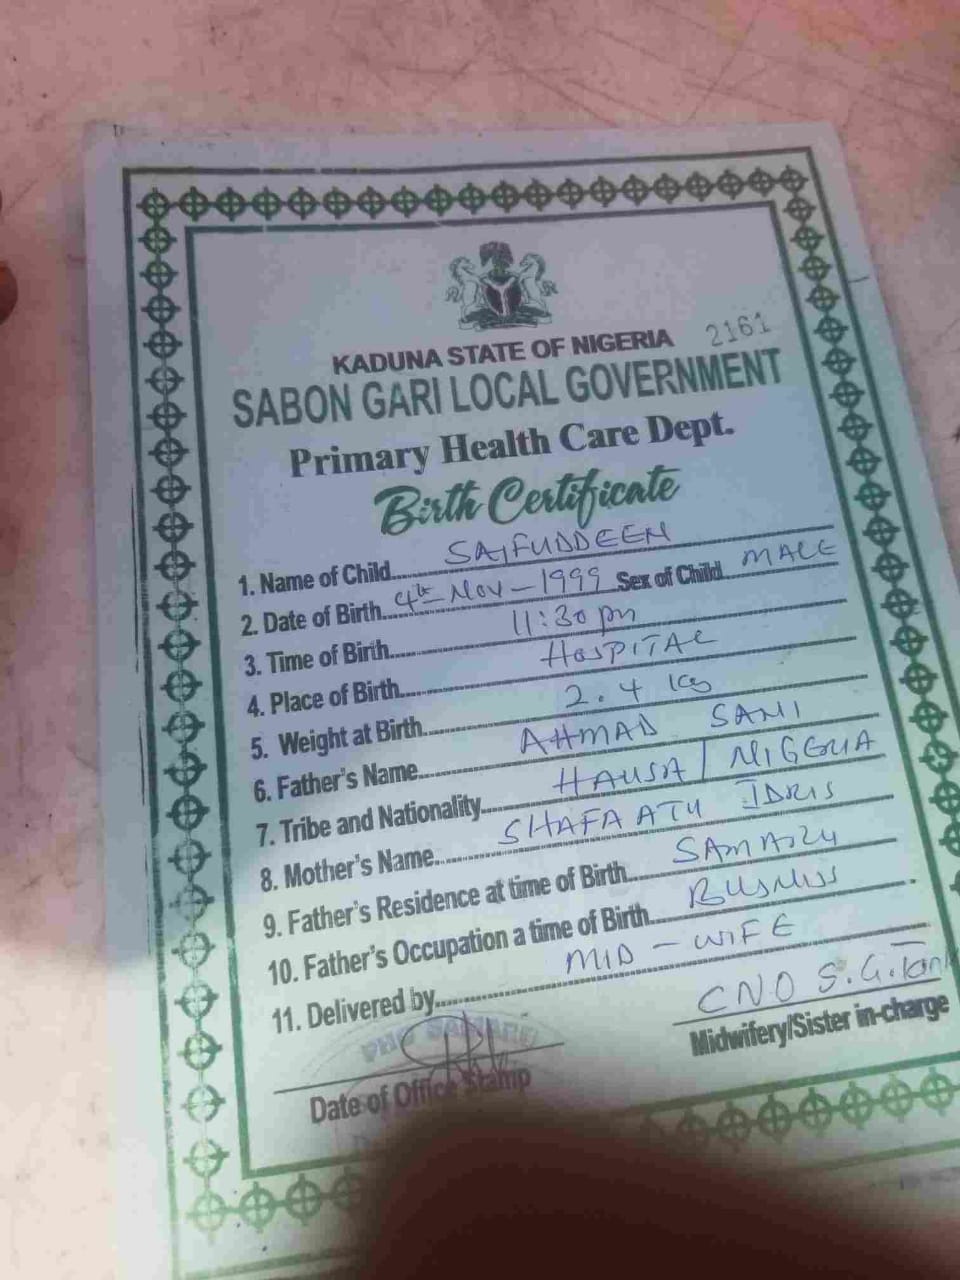 2161
KADUNA STATE OF NIGERIA
SABON GARI LOCAL GOVERNMENT
Primary Health Care Dept.
Birth Certificate
1. Name of Child SAIFUDDEEN
2. Date of Birth 4th Nov - 1999 Sex of Child MALE
3. Time of Birth 11:30 pm
4. Place of Birth HOSPITAL
5. Weight at Birth 2.4 kg
6. Father's Name AHMAD SANI
7. Tribe and Nationality HAUSA / NIGERIA
8. Mother's Name SHAFAATU IDRIS
9. Father's Residence at time of Birth
10. Father's Occupation a time of Birth
11. Delivered by MID - WIFE
CNO S.G.
Date of Office Stamp
Midwifery/Sister in-charge